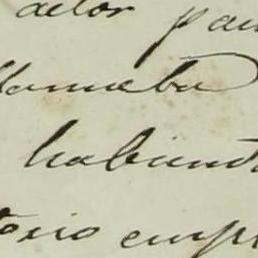 actor par
llamaba
habiend
torio emp